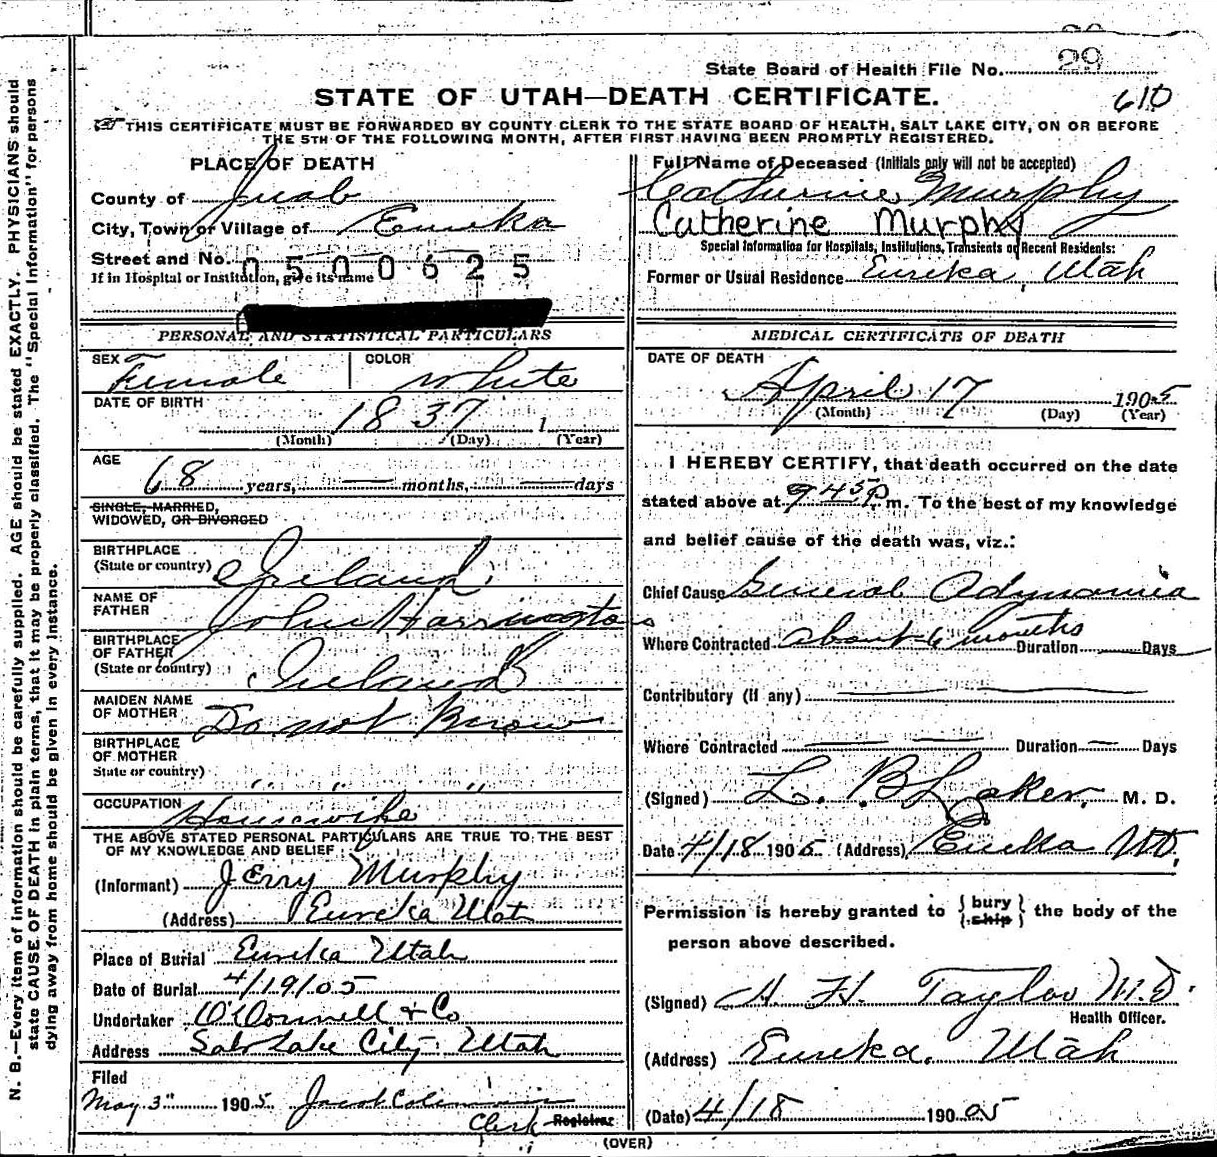 State Board of Health File No. 29
STATE OF UTAH—DEATH CERTIFICATE. 610
THIS CERTIFICATE MUST BE FORWARDED BY COUNTY CLERK TO THE STATE BOARD OF HEALTH, SALT LAKE CITY, ON OR BEFORE
THE 5TH OF THE FOLLOWING MONTH, AFTER FIRST HAVING BEEN PROMPTLY REGISTERED.
PLACE OF DEATH
County of Juab
City, Town or Village of Eureka
Street and No. 0500625
If in Hospital or Institution, give its name
PERSONAL AND STATISTICAL PARTICULARS
SEX Female COLOR White
DATE OF BIRTH 1837
(Month) (Day) (Year)
AGE 68 years, — months, — days
SINGLE, MARRIED,
WIDOWED, OR DIVORCED
BIRTHPLACE
(State or country) Ireland.
NAME OF
FATHER John Harrington
BIRTHPLACE
OF FATHER
(State or country) Ireland
MAIDEN NAME
OF MOTHER Do not Know
BIRTHPLACE
OF MOTHER
State or country) " " "
OCCUPATION Housewife
THE ABOVE STATED PERSONAL PARTICULARS ARE TRUE TO THE BEST
OF MY KNOWLEDGE AND BELIEF
(Informant) Jerry Murphy
(Address) Eureka Utah
Place of Burial Eureka Utah
Date of Burial 4/19/05
Undertaker O'Donnell & Co
Address Salt Lake City Utah
Filed
May 3" 1905 Jacob
Clerk Registrar
Full Name of Deceased (Initials only will not be accepted)
Catherine Murphy
Catherine Murphy
Special Information for Hospitals, Institutions, Transients or Recent Residents:
Former or Usual Residence Eureka, Utah
MEDICAL CERTIFICATE OF DEATH
DATE OF DEATH
April 17 1905
(Month) (Day) (Year)
I HEREBY CERTIFY, that death occurred on the date
stated above at 9 45 P. m. To the best of my knowledge
and belief cause of the death was, viz.:
Chief Cause General Adynamia
Where Contracted about 6 months Duration Days
Contributory (If any)
Where Contracted Duration — Days
(Signed) L. B. Laker. M. D.
Date 4/18 1905 (Address) Eureka Ut.
Permission is hereby granted to { bury ship } the body of the
person above described.
(Signed) H. H. Taylor M.D.
Health Officer.
(Address) Eureka. Utah
(Date) 4/18 1905
(OVER)
N. B.—Every item of information should be carefully supplied. AGE should be stated EXACTLY. PHYSICIANS should
state CAUSE OF DEATH in plain terms, that it may be properly classified. The "Special Information" for persons
dying away from home should be given in every instance.